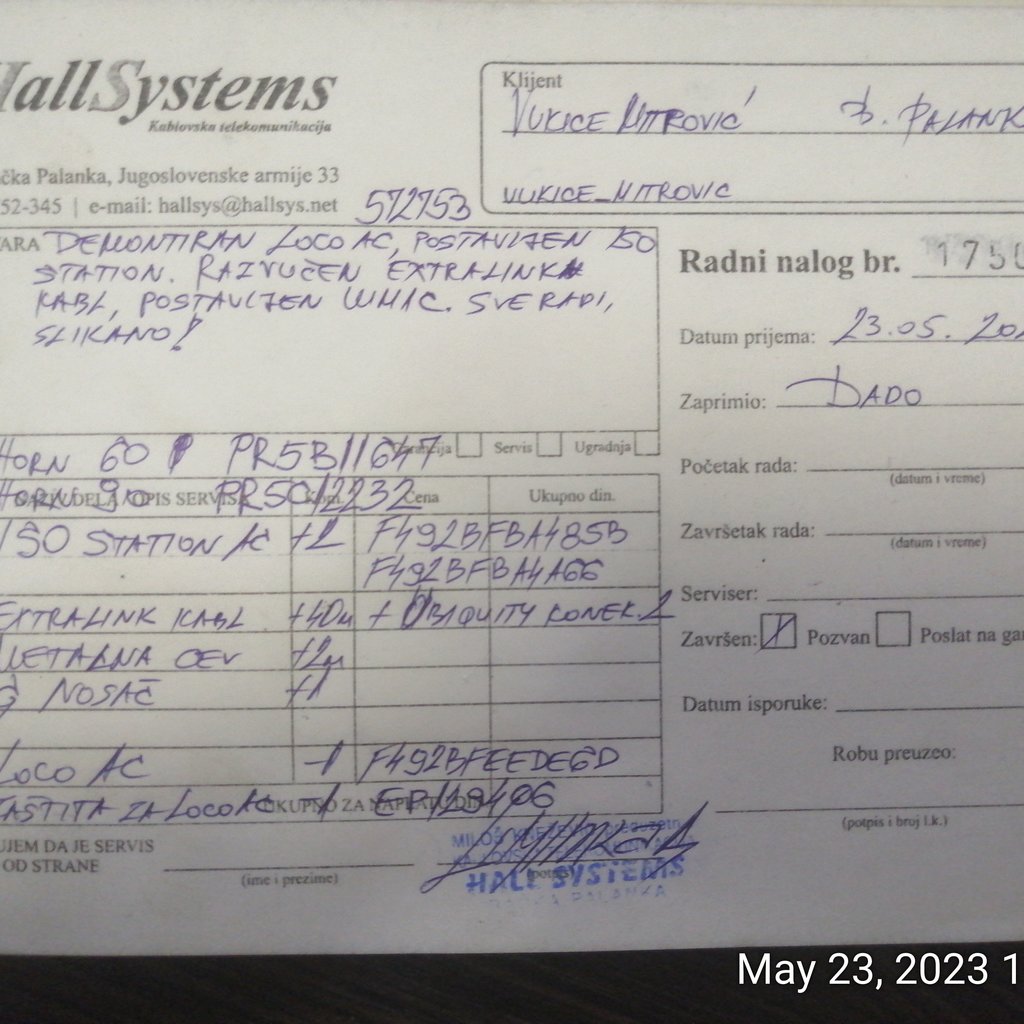 HallSystems
Kablovska telekomunikacija
čka Palanka, Jugoslovenske armije 33
52-345 | e-mail: hallsys@hallsys.net
572753
Klijent
VUKICE MITROVIĆ B. PALANK
VUKICE_MITROVIC
ARA DEMONTIRAN LOCO AC, POSTAVLJEN ISO
STATION. RAZVUČEN EXTRALINK
KABL, POSTAVLJEN UHIC. SVE RADI,
SLIKANO!
Radni nalog br. 1750
Datum prijema: 23.05. 202
Zaprimio: DADO
Početak rada:
(datum i vreme)
Završetak rada:
(datum i vreme)
Serviser:
Završen: Pozvan Poslat na gar
Datum isporuke:
Robu preuzeo:
(potpis i broj l.k.)
Garancija Servis Ugradnja
HORN 60 PR5B11647
HORN 90 PR5C12232
OPIS SERVISA Kom. Cena Ukupno din.
ISO STATION AC +2 F492BFBA485B
F492BFBA4A66
EXTRALINK KABL +40m + UBIQUITY KONEK. 2
METALNA CEV +2m
G NOSAČ +1
LOCO AC -1 F492BFEEDE6D
ZAŠTITA ZA LOCO AC -1 EP129406
UKUPNO ZA NAPLATU DIN
UJEM DA JE SERVIS
OD STRANE
(ime i prezime)
(potpis)
HALL SYSTEMS
BAČKA PALANKA
May 23, 2023 1